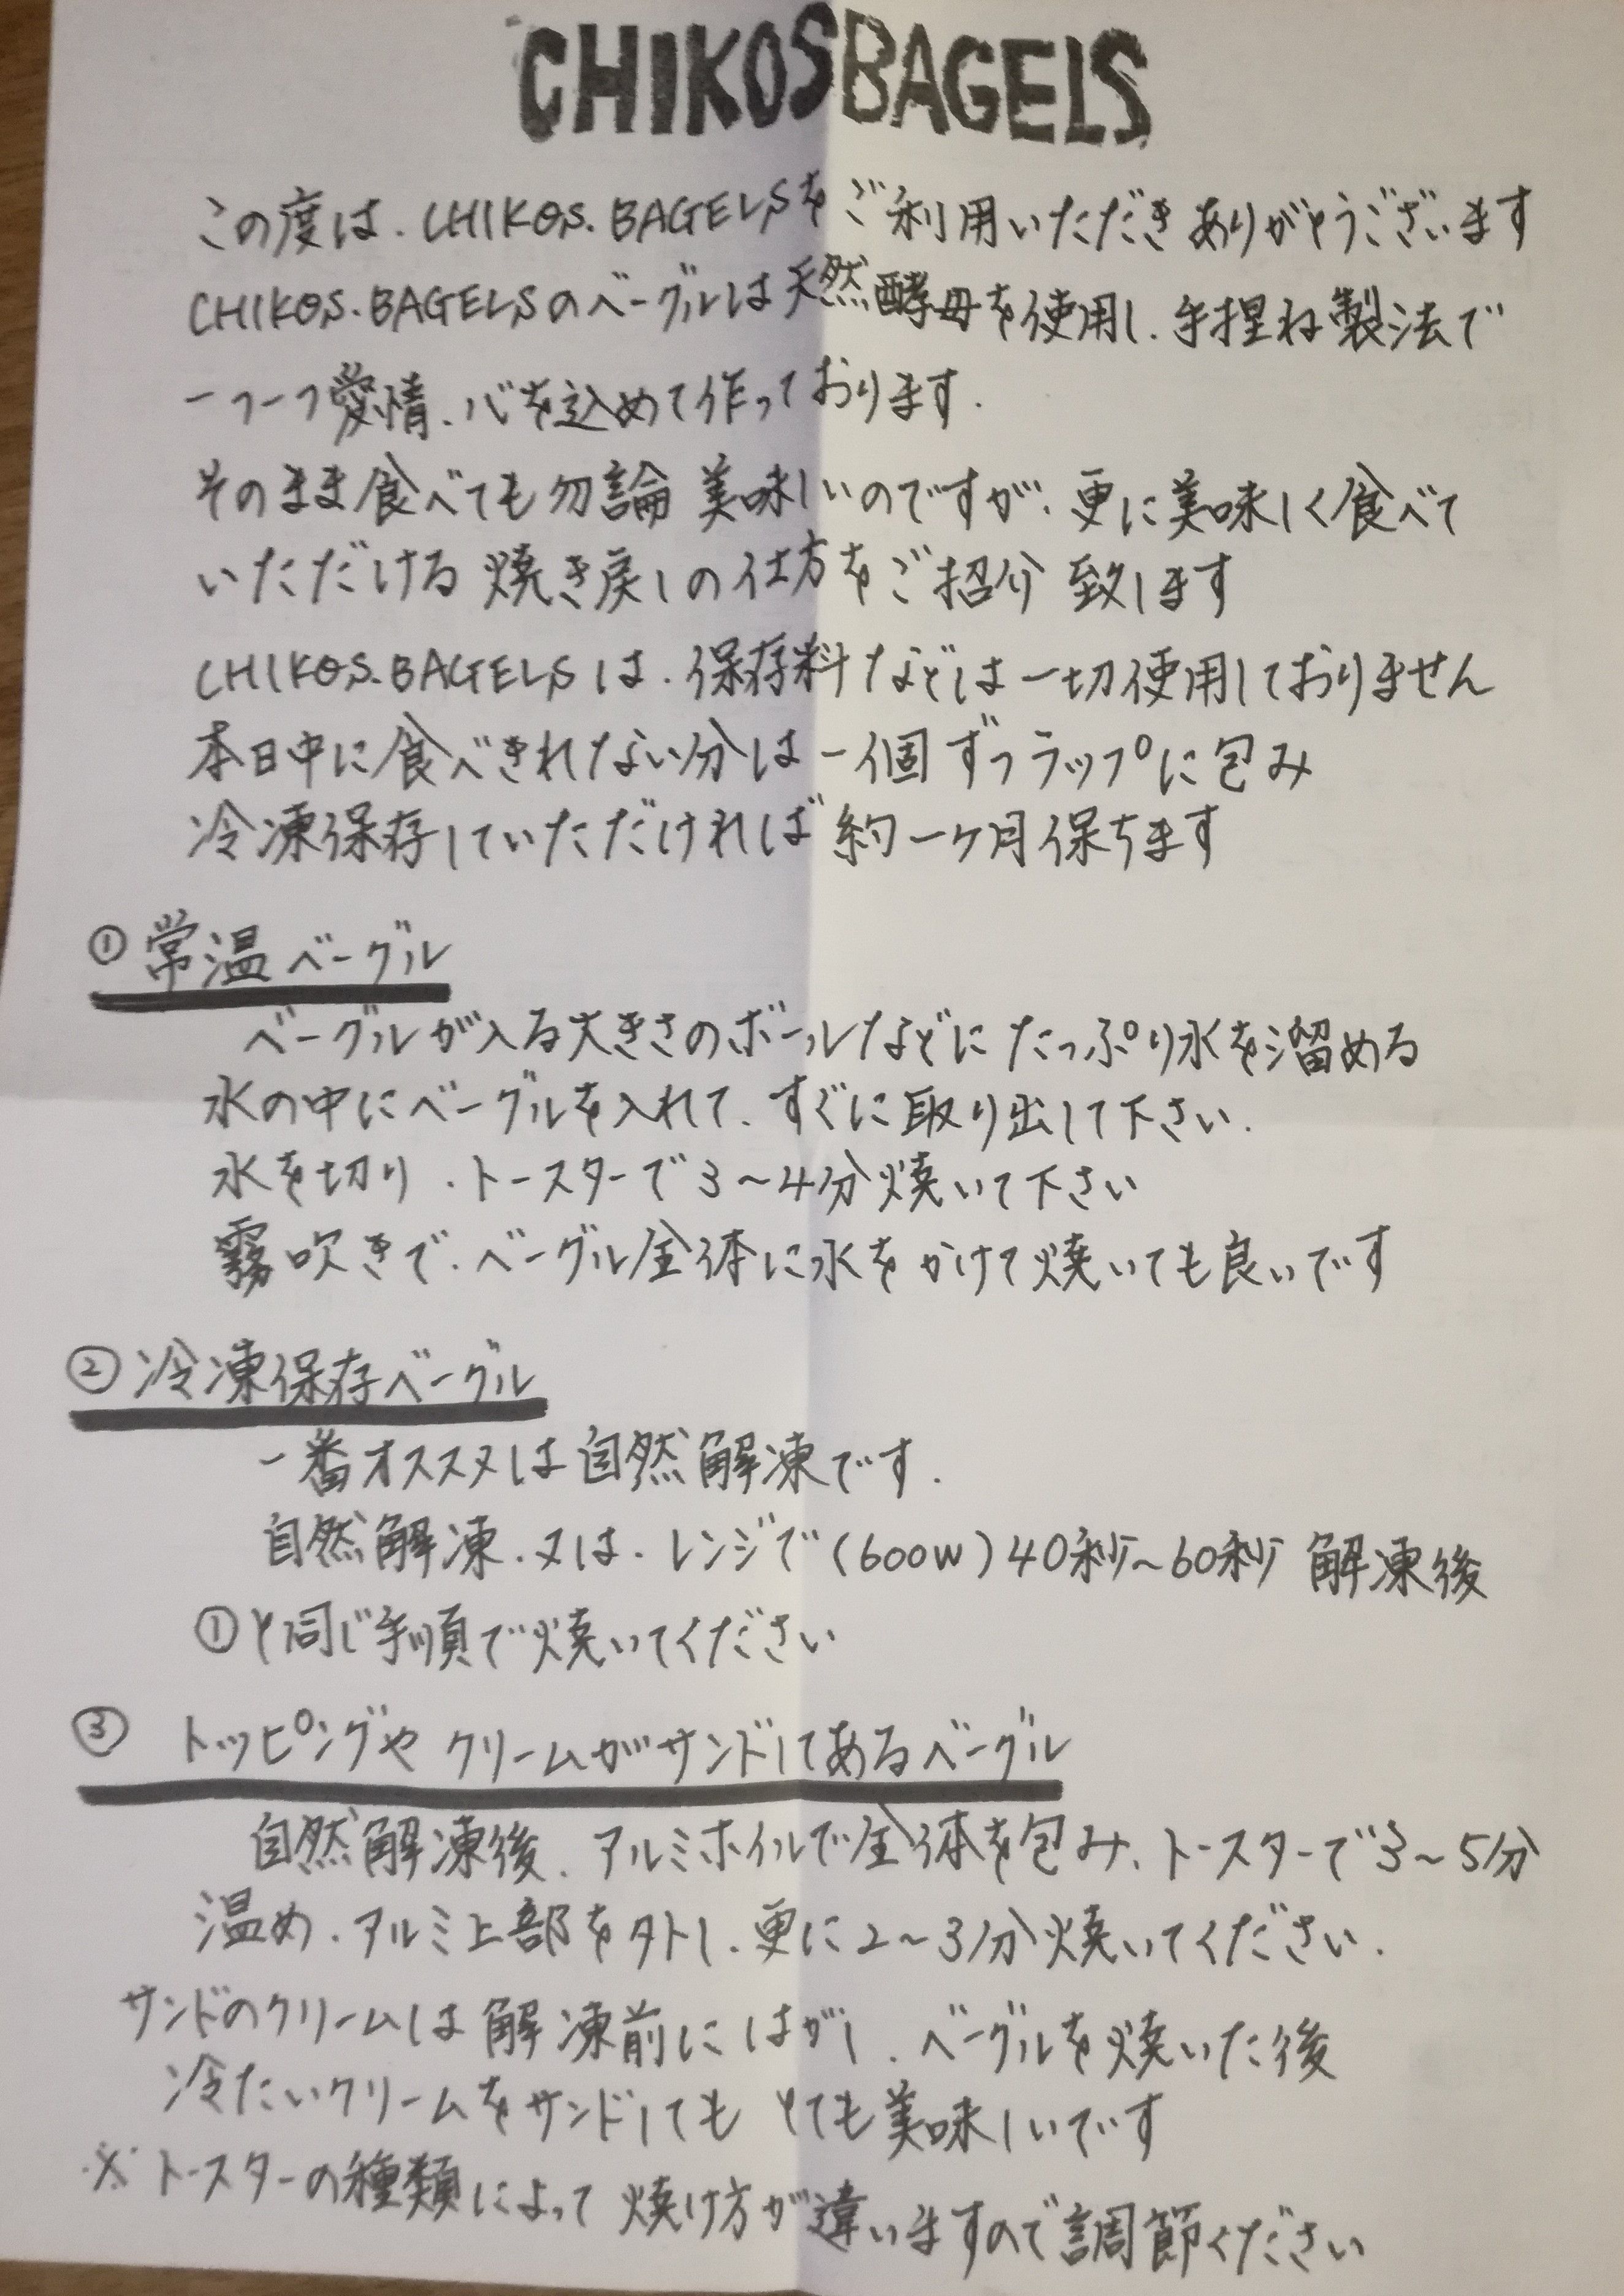 CHIKOSBAGELS
この度は、CHIKOS.BAGELSをご利用いただきありがとうございます
CHIKOS.BAGELSのベーグルは天然酵母を使用し、手捏ね製法で
一つ一つ愛情、心を込めて作っております.
そのまま食べても勿論 美味しいのですが、更に美味しく食べて
いただける 焼き戻しの仕方をご紹介 致します
CHIKOS.BAGELSは、保存料などは一切使用しておりません
本日中に食べきれない分は一個ずつラップに包み
冷凍保存していただければ約一ヶ月保ちます
① 常温ベーグル
ベーグルが入る大きさのボールなどにたっぷり水を溜める
水の中にベーグルを入れて、すぐに取り出して下さい.
水を切り、トースターで3～4分焼いて下さい
霧吹きで、ベーグル全体に水をかけて焼いても良いです
② 冷凍保存ベーグル
一番オススメは自然解凍です.
自然解凍、又は、レンジで(600W)40秒～60秒 解凍後
①と同じ手順で焼いてください
③ トッピングやクリームがサンドしてあるベーグル
自然解凍後、アルミホイルで全体を包み、トースターで3～5分
温め、アルミ上部を外し、更に2～3分焼いてください.
サンドのクリームは解凍前にはがし、ベーグルを焼いた後
冷たいクリームをサンドしてもとても美味しいです
※トースターの種類によって焼け方が違いますので調節ください